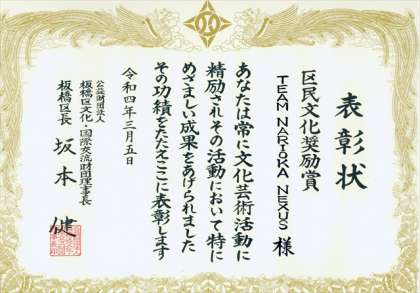 表彰状
区民文化奨励賞
TEAM NARIOKA NEXUS 様
あなたは常に文化芸術活動に
精励されその活動において特に
めざましい成果をあげられました
その功績をたたえここに表彰します
令和四年三月五日
公益財団法人
板橋区文化・国際交流財団理事長
板橋区長 坂本 健